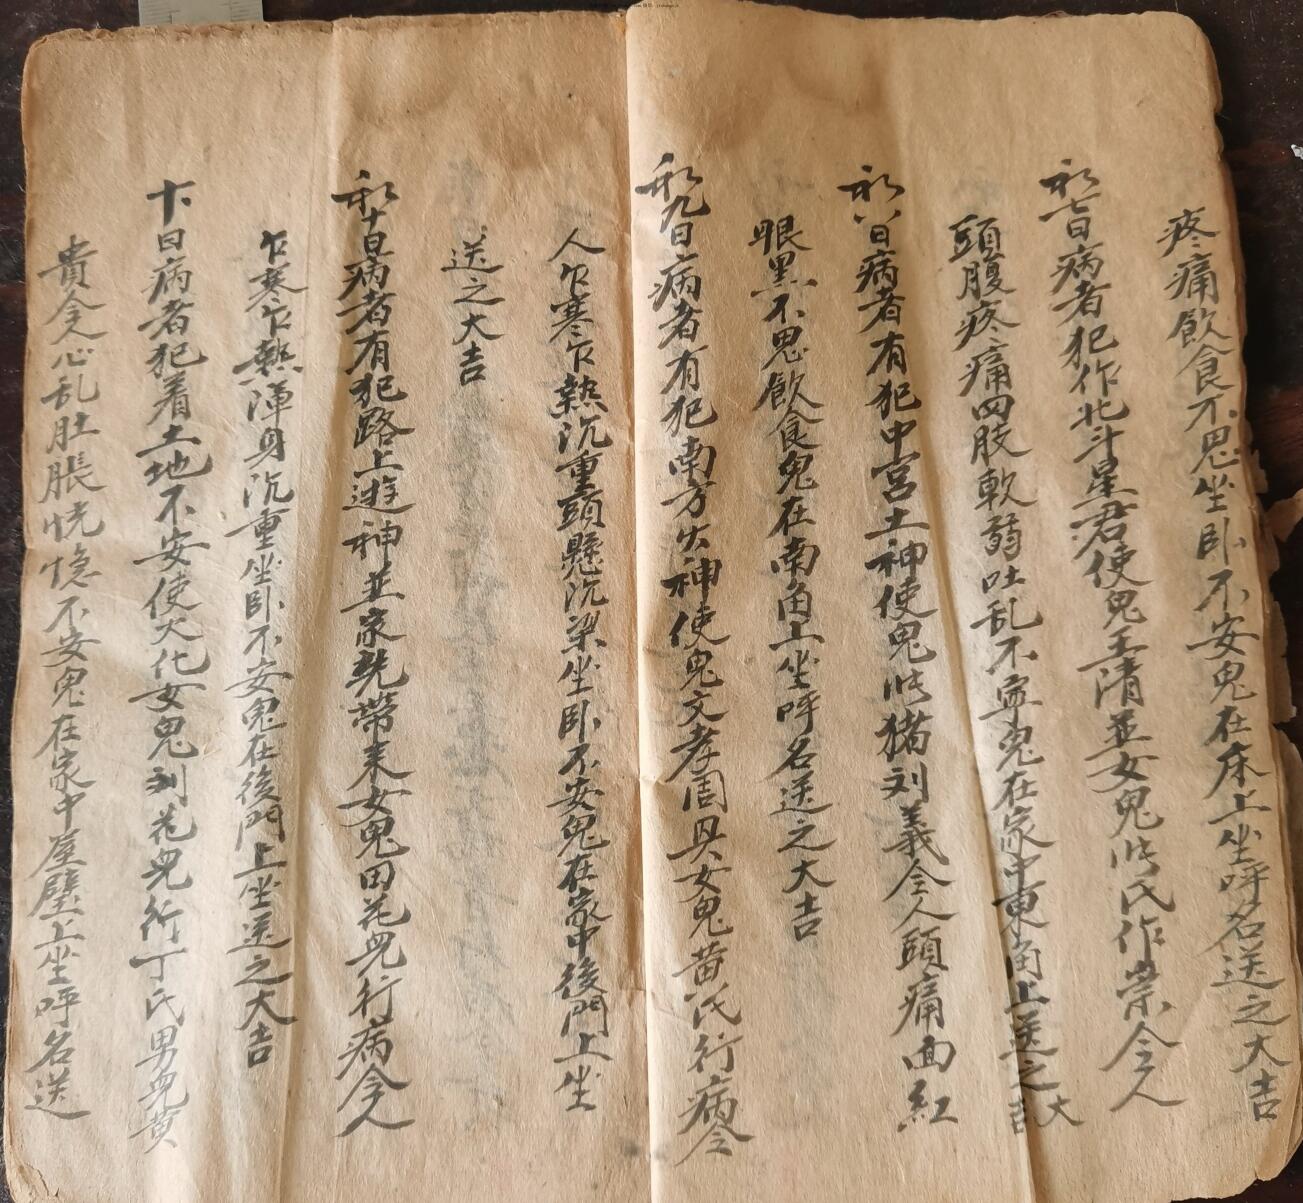 疼痛飲食不思坐卧不安鬼在床上坐呼名送之大吉
初七日病者犯作北斗星君使鬼王清並女鬼氏作祟令人
頭腹疼痛四肢軟弱吐乱不寧鬼在家中東角上送之大吉
初八日病者有犯中宫土神使鬼猪刘義令人頭痛面紅
眼黑不思飲食鬼在南角上坐呼名送之大吉
初九日病者有犯南方火神使鬼文孝周具女鬼黄氏行病令
人乍寒乍熱沉重頭懸沉梁坐卧不安鬼在家中後門上坐
送之大吉
初十日病者有犯路上遊神並家先帶来女鬼田花兒行病令人
乍寒乍熱渾身沉重坐卧不安鬼在後門上坐送之大吉
十一日病者犯着土地不安使天化女鬼刘花兒行丁氏男兒黄
貴令人心乱肚脹恍惚不安鬼在家中屋壁上坐呼名送